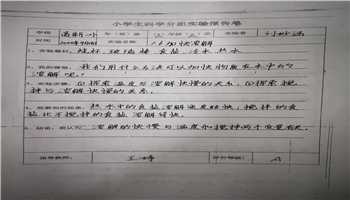 小学生科学分组实验报告单
学校 高新一小 年(班) 实验者 刘
时间 实验名称 1.6加快溶解
1、实验器材: 烧杯 玻璃棒 食盐 冷水 热水
2、我的猜想: 我们用什么方法可以加快物质在水中的
溶解呢?
3、实验步骤: ①探索温度与溶解快慢的关系。②探索搅
拌与溶解快慢的关系。
4、观察到的现象: 热水中的食盐溶解速度较快,搅拌的食
盐比不搅拌的食盐溶解得快。
5、结论: 我认为: 溶解的快慢与温度和搅拌两个变量有关。
指导教师: 王婷 评价等级: